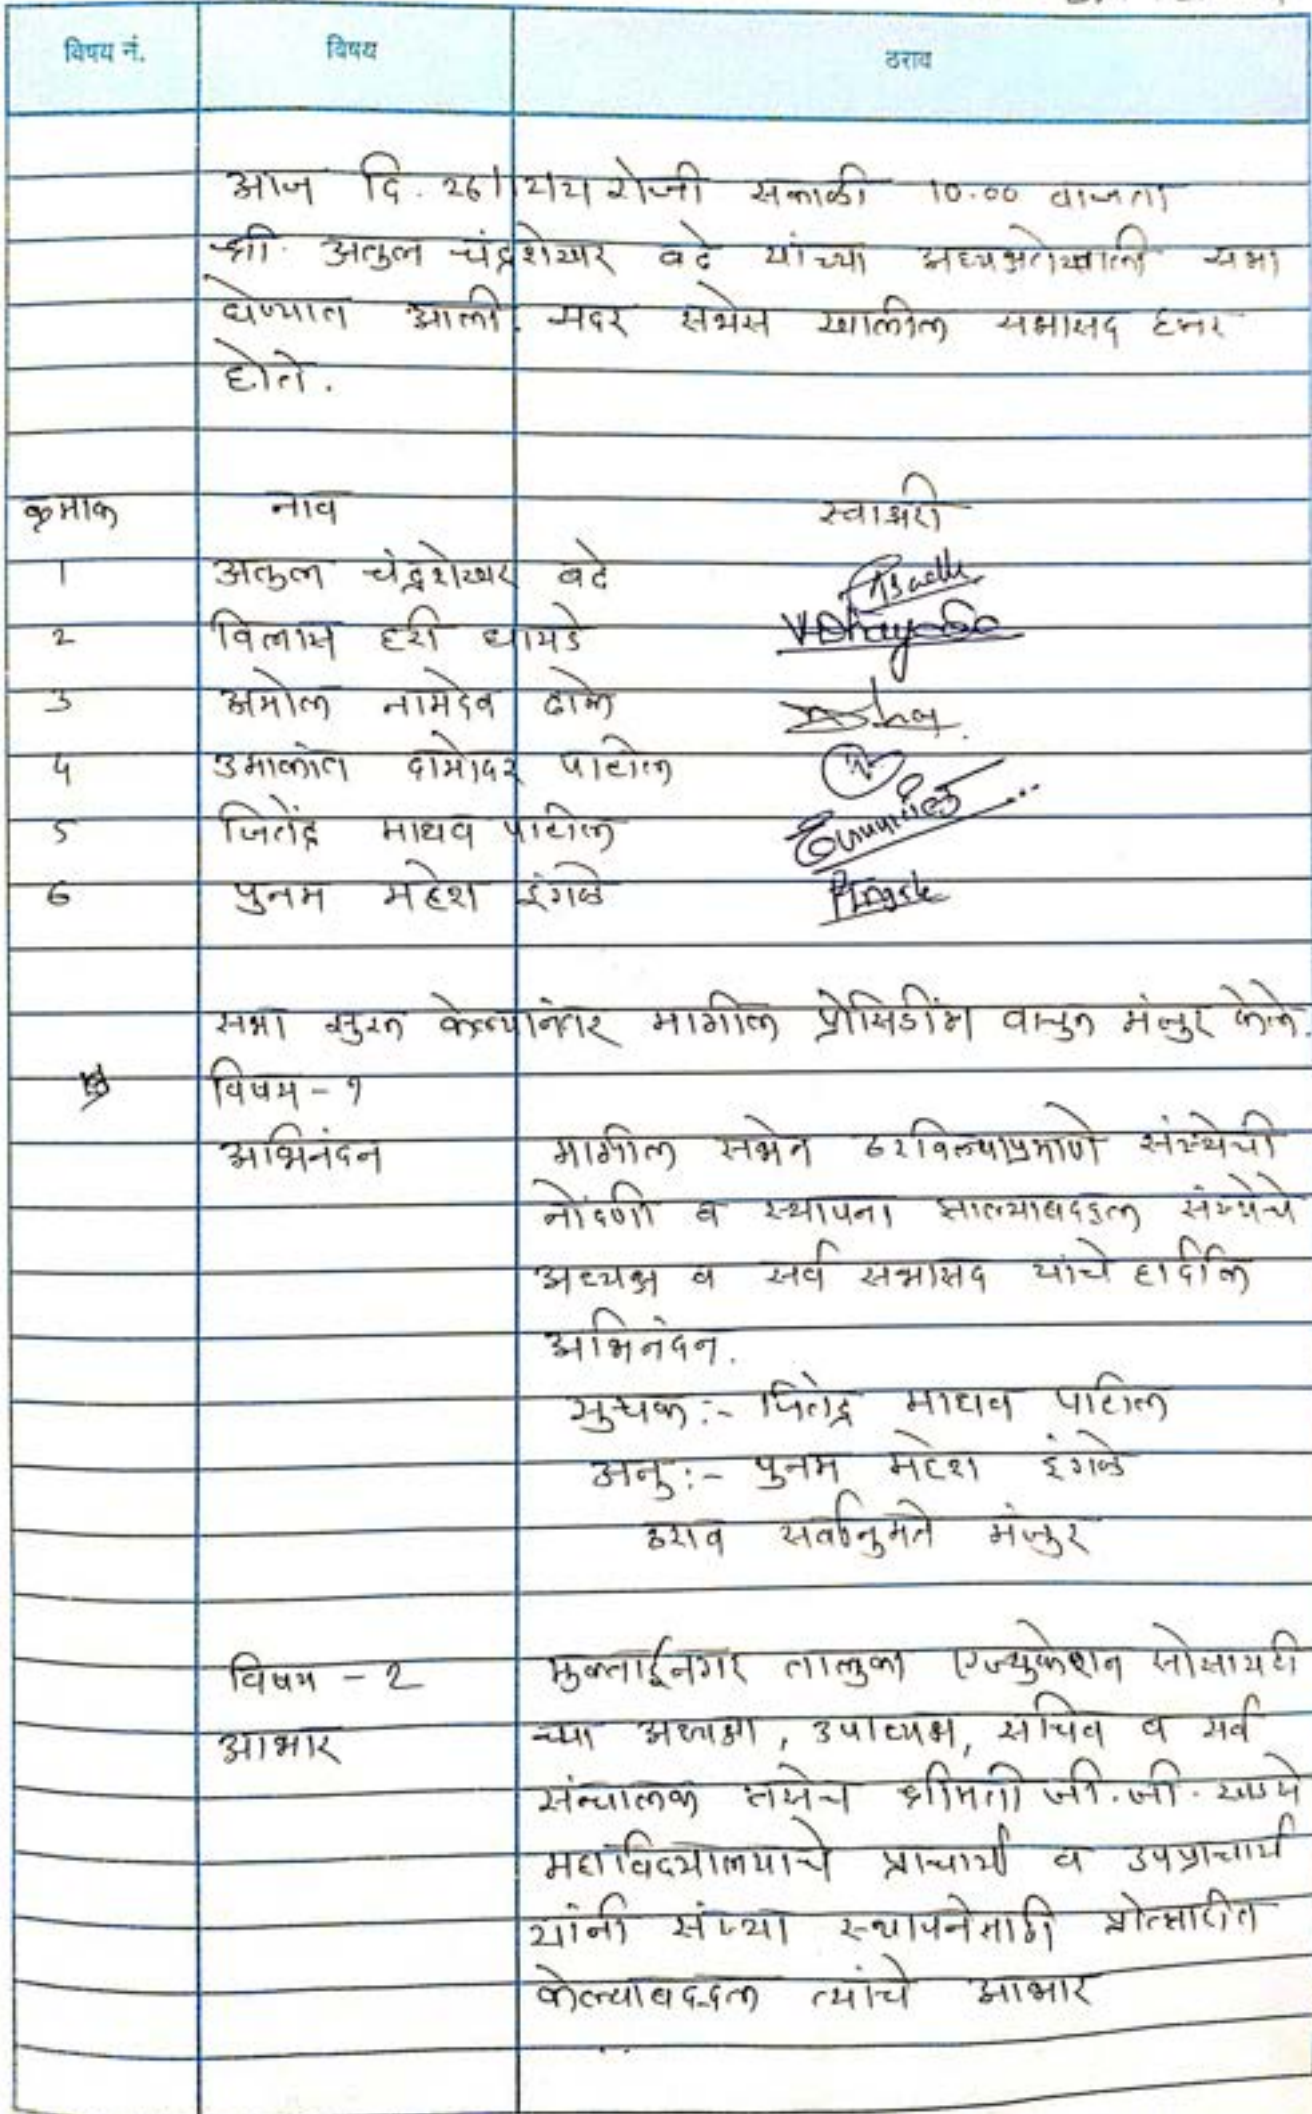 विषय नं. विषय ठराव
आज दि. रोजी सकाळी 10.00 वाजता
श्री. अतुल चंद्रशेखर बढे यांच्या अध्यक्षतेखाली सभा
घेण्यात आली. सदर सभेस खालील सभासद हजर
होते.
क्रमांक नाव स्वाक्षरी
1 अतुल चंद्रशेखर बढे
2 विलास हरी धायडे
3 अमोल नामदेव ढाके
4 उमाकांत दामोदर पाटील
5 जितेंद्र माधव पाटील
6 पुनम महेश इंगळे PIngale
सभा सुरु केल्यानंतर मागील प्रोसिडींग वाचुन मंजुर केले.
विषय - १
अभिनंदन मागील सभेत ठरविल्याप्रमाणे संस्थेची
नोंदणी व स्थापना झाल्याबद्दल संस्थेचे
अध्यक्ष व सर्व सभासद यांचे हार्दिक
अभिनंदन.
सुचक :- जितेंद्र माधव पाटील
अनु :- पुनम महेश इंगळे
ठराव सर्वानुमते मंजुर
विषय - 2 मुक्ताईनगर तालुका एज्युकेशन सोसायटी
आभार च्या अध्यक्षा, उपाध्यक्ष, सचिव व सर्व
संचालक तसेच श्रीमती जी.जी. खडसे
महाविद्यालयाचे प्राचार्य व उपप्राचार्य
यांनी संस्था स्थापनेसाठी प्रोत्साहीत
केल्याबद्दल त्यांचे आभार